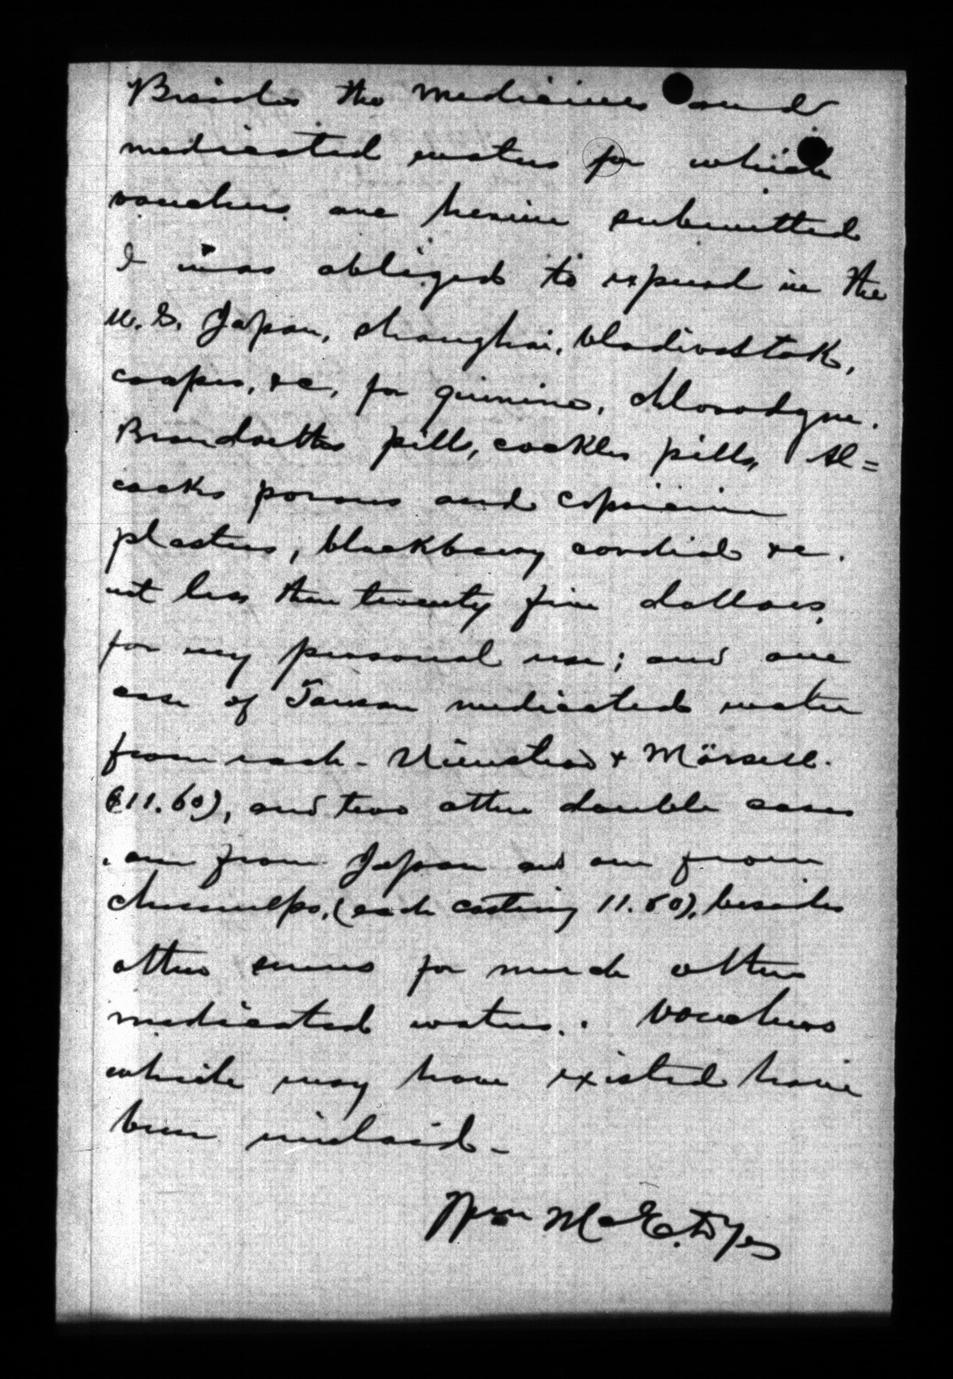 Besides the medicines and
medicated waters for which
vouchers are herein submitted
I was obliged to expend in the
U. S. Japan, Shanghai, Vladivostok,
&c, for quinine, chlorodyne.
Brandreths pills, cockles pills, Al=
cocks porous and capsicine
plasters, blackberry cordial &c.
not less than twenty five dollars,
for my personal use; and one
case of Tansan medicated water
from each - & Mörsell.
($11.60), and two other double cases
, one from Japan and one from
Chemulpo, (each costing 11.60), besides
other sums for much other
medicated waters. Vouchers
which may have existed have
been mislaid -
Wm McE. Dye